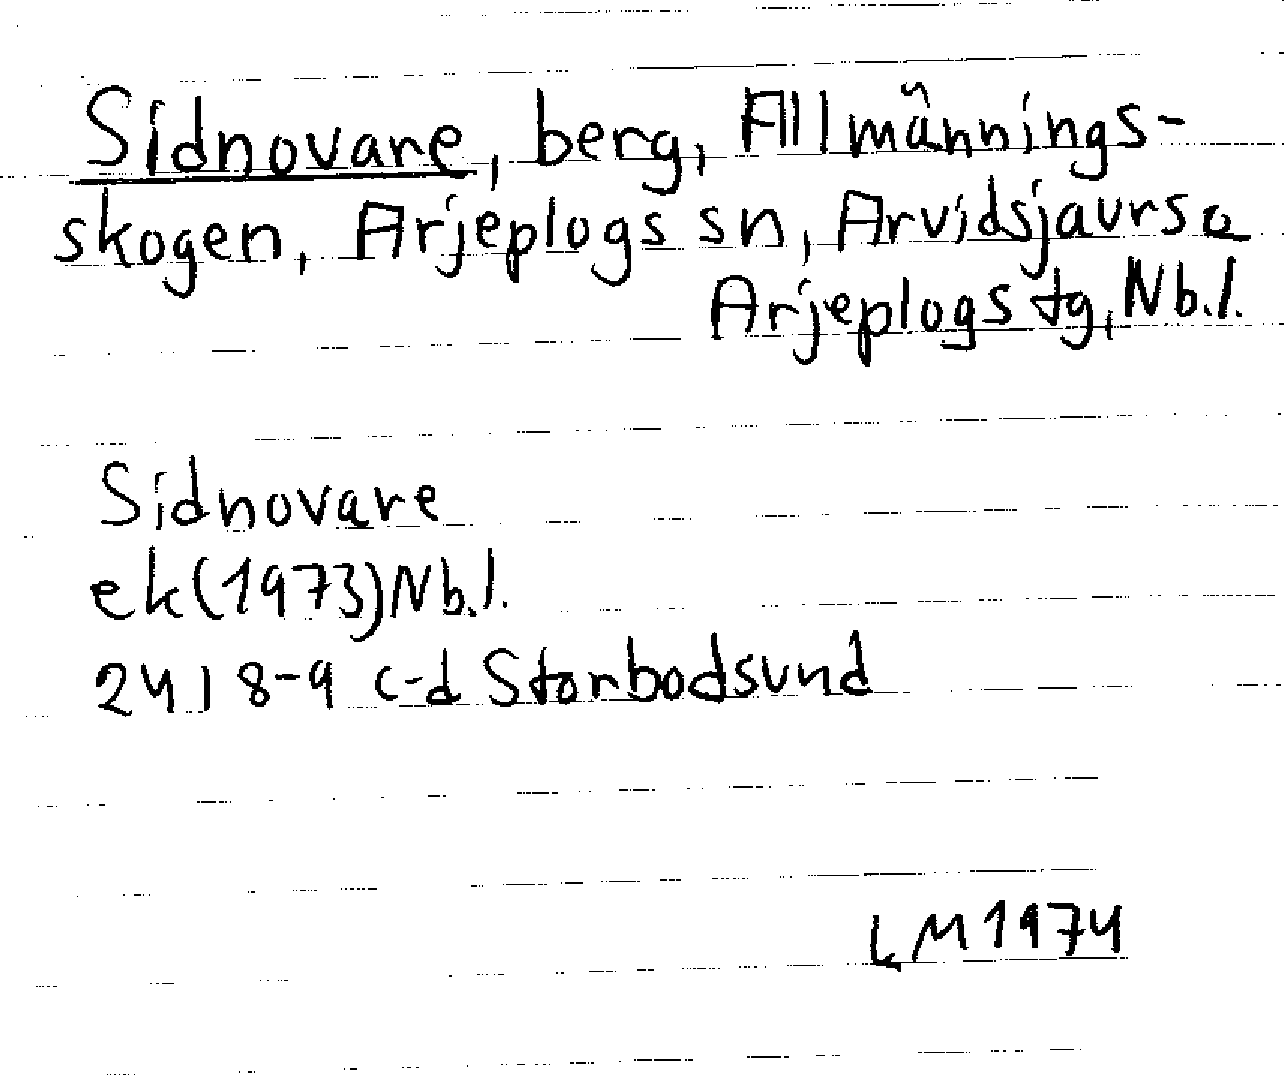 Sidnovare, berg, Allmännings-
skogen, Arjeplogs sn, Arvidsjaurs o
Arjeplogs tg, Nb.l.
Sidnovare
ek (1973) Nb.l.
24 I 8-9 c-d Storbodsund
LM 1974